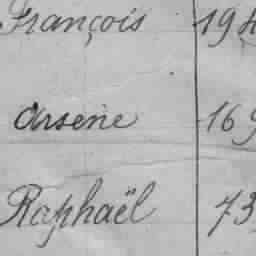 François 194
Arsene 169
Raphaël 73